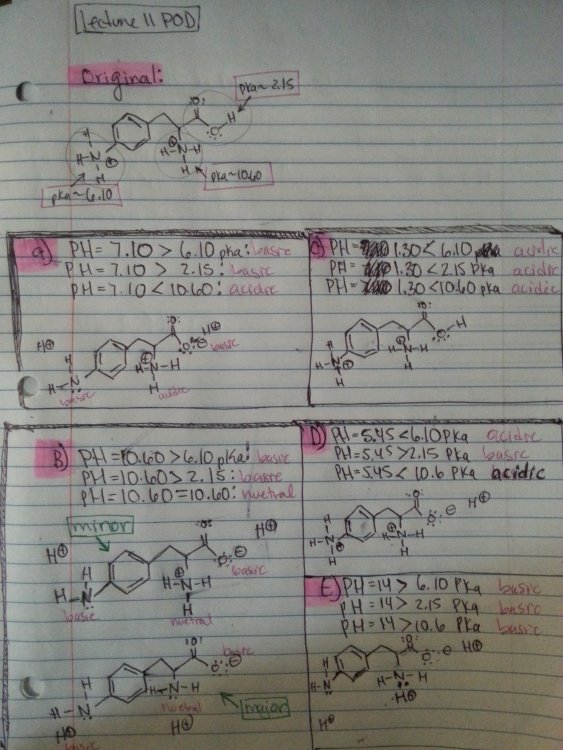 Lecture 11 POD
Original:
pka~2.15
pka~10.60
pka~6.10
a) PH= 7.10 > 6.10 pka: basic
PH= 7.10 > 2.15: basic
PH= 7.10 < 10.60: acidic
H⊕
H⊕
basic
basic
acidic
B) PH=10.60>6.10 pka: basic
PH=10.60> 2.15: basic
pH= 10.60=10.60: nuetral
minor
H⊕
H⊕
basic
basic
nuetral
basic
nuetral
major
H⊕
H⊕
basic
C) PH= 1.30< 6.10 pka acidic
PH= 1.30 <2.15 Pka acidic
PH= 1.30<10.60 pka acidic
D) PH=5.45<6.10 PKa acidic
PH=5.45>2.15 PKa basic
PH=5.45< 10.6 PKa acidic
H⊕
E) PH=14 > 6.10 PKa basic
PH=14> 2.15 PKa basic
PH=14>10.6 PKa basic
H⊕
H⊕
H⊕